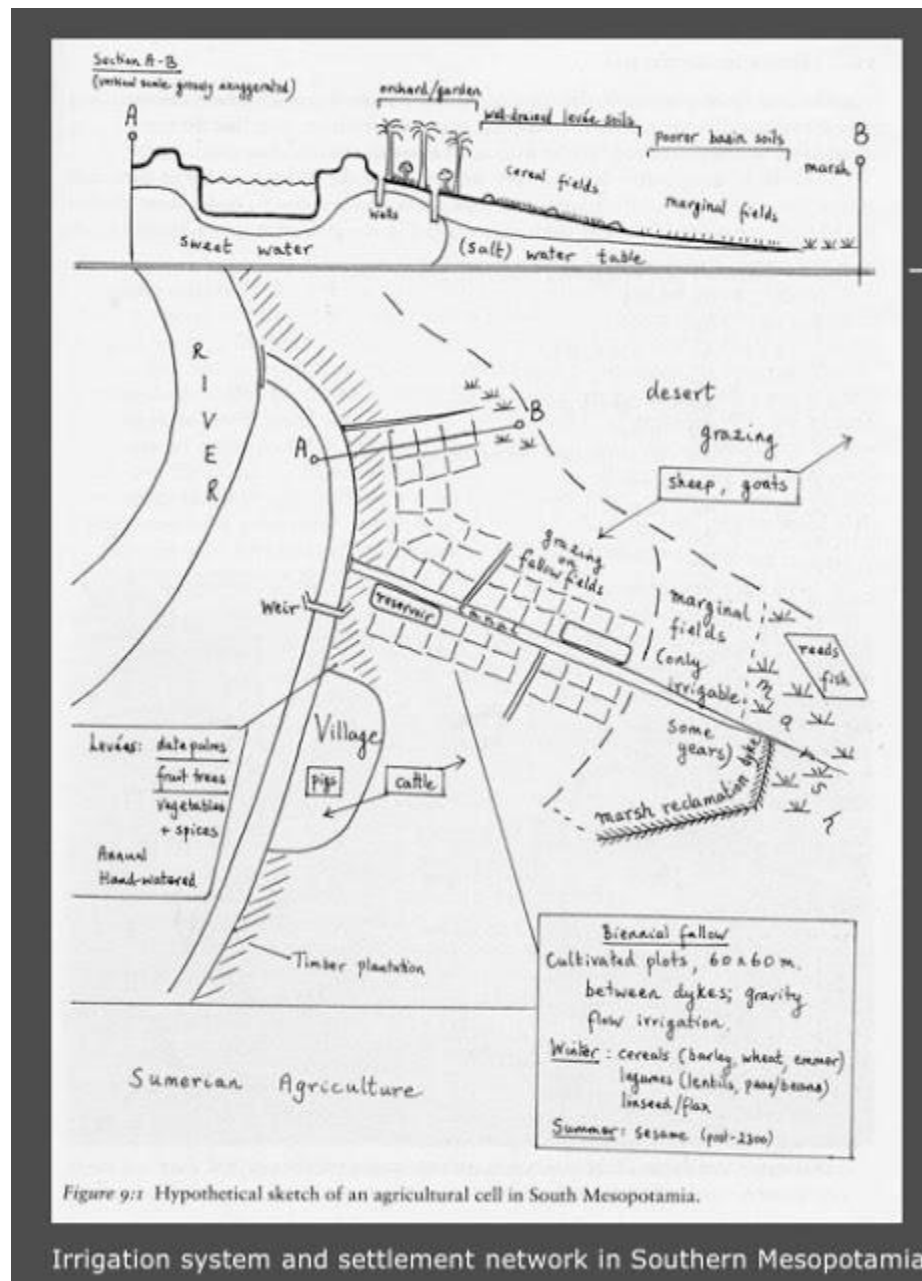 Section A-B
(vertical scale grossly exaggerated)
orchard/garden
well-drained levée soils
poorer basin soils
A
B
marsh
cereal fields
marginal fields
Wells
Sweet water
(salt) water table
RIVER
desert
grazing
sheep, goats
A
B
grazing
on
fallow fields
reservoir
canal
Weir
marginal
fields
(only
irrigable
some
years)
reeds
fish
marsh reclamation dyke
Village
pigs
cattle
Levées: date palms
fruit trees
vegetables
+ spices
Annual
Hand-watered
Timber plantation
Biennial fallow
Cultivated plots, 60 x 60 m.
between dykes; gravity
flow irrigation.
Winter: cereals (barley, wheat, emmer)
legumes (lentils, peas/beans)
linseed/flax
Summer: sesame (post-2300)
Sumerian Agriculture
Figure 9:1 Hypothetical sketch of an agricultural cell in South Mesopotamia.
Irrigation system and settlement network in Southern Mesopotamia